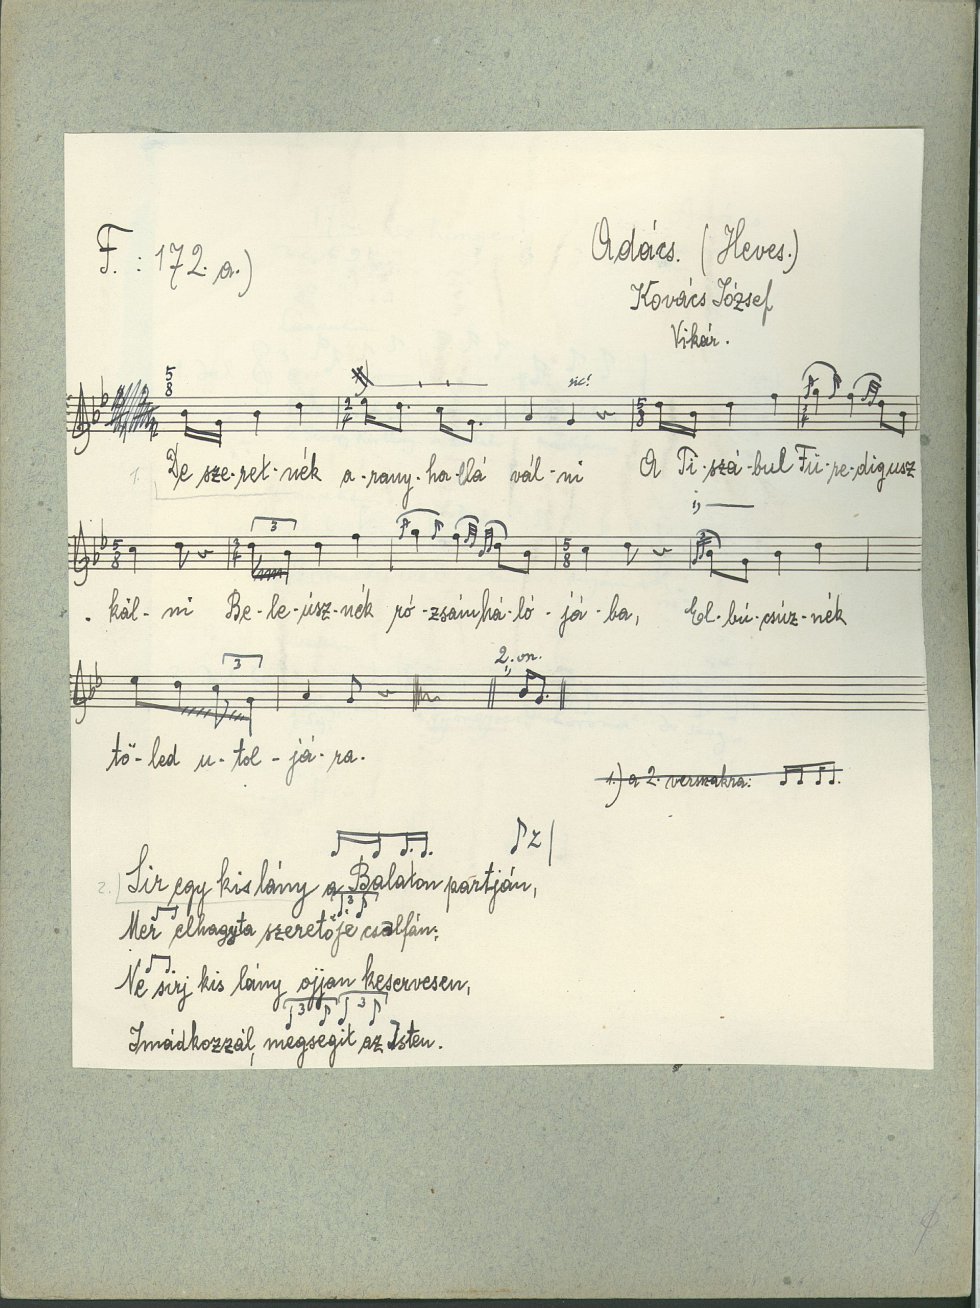 F. : 172. a.)
Adács. (Heves.)
Kovács József
Vikár.
5
8
2
4
sic!
5
8
3
4
1. De sze-ret-nék a-rany-hallá vál-ni A Ti-szá-bul Fü-re-digusz
5
8
3
4
3
5
8
kál-ni Be-le-úsz-nék ró-zsám há-ló-já-ba, El-bú-csúz-nék
3
2. vn.
tő-led u-tol-já-ra.
1.) a 2. verszakra:
2.) Sir egy kis lány a Balaton partján,
3
Mer elhagyta szeretője csalfán;
Ne sirj kis lány ojjan keservesen,
3 3
Imádkozzál, megsegit az Isten.